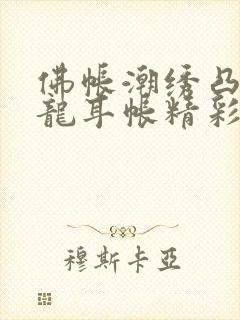 佛帳潮绣凸
龍耳帐精彩
穆斯卡亞